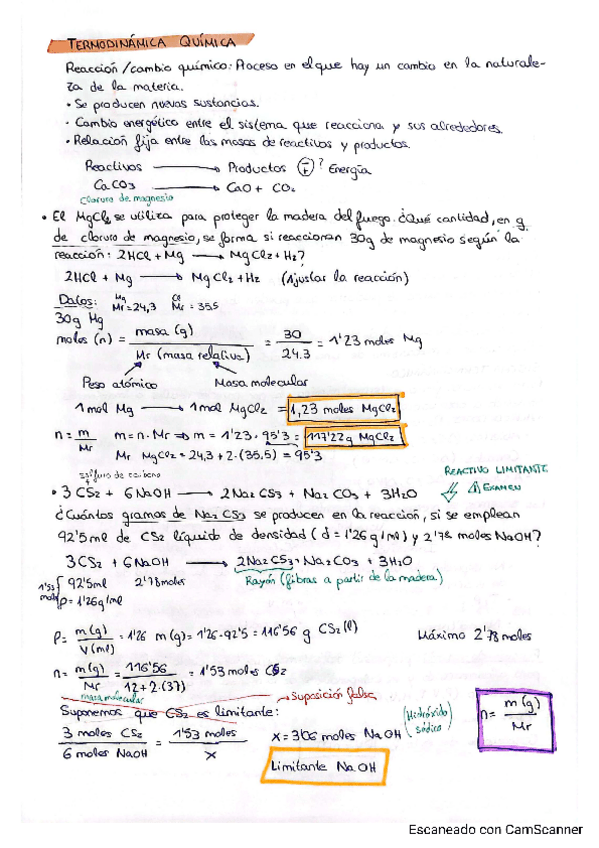 TERMODINÁMICA QUÍMICA
Reacción/cambio químico: Proceso en el que hay un cambio en la naturale-
za de la materia.
• Se producen nuevas sustancias.
• Cambio energético entre el sistema que reacciona y sus alrededores.
• Relación fija entre las masas de reactivos y productos.
Reactivos ⟶ Productos ± ? Energía
CaCO3 ⟶ CaO + CO2
Cloruro de magnesio
• El MgCl2 se utiliza para proteger la madera del fuego. ¿Qué cantidad, en g
de cloruro de magnesio, se forma si reaccionan 30g de magnesio según la
reacción: 2HCl + Mg ⟶ MgCl2 + H2?
2HCl + Mg ⟶ MgCl2 + H2 (Ajustar la reacción)
Datos: Mg Mr = 24,3 Cl Mr = 35.5
30g Mg
moles (n) = masa (g) / Mr (masa relativa) = 30 / 24.3 = 1'23 moles Mg
Peso atómico Masa molecular
1 mol Mg ⟶ 1 mol MgCl2 = 1,23 moles MgCl2
n = m / Mr m = n · Mr ⇒ m = 1'23 · 95'3 = 117'22g MgCl2
Mr MgCl2 = 24,3 + 2·(35.5) = 95'3
REACTIVO LIMITANTE
EXAMEN
sulfuro de carbono
• 3 CS2 + 6 NaOH ⟶ 2 Na2 CS3 + Na2 CO3 + 3H2O
¿Cuántos gramos de Na2 CS3 se producen en la reacción, si se emplean
92'5 ml de CS2 líquido de densidad (d = 1'26 g/ml) y 2'78 moles NaOH?
3 CS2 + 6 NaOH ⟶ 2Na2 CS3 + Na2CO3 + 3H2O
1'53 moles 92'5ml 2'78moles Rayón (fibras a partir de la madera)
ρ = 1'26g/ml
ρ = m(g) / V(ml) = 1'26 m(g) = 1'26 · 92'5 = 116'56 g CS2 (l) Máximo 2'78 moles
n = m(g) / Mr = 116'56 / 12 + 2·(32) = 1'53 moles CS2
masa molecular
Suposición falsa
Suponemos que CS2 es limitante:
3 moles CS2 / 6 moles NaOH = 1'53 moles / x x = 3'06 moles NaOH (Hidróxido sódico)
n = m(g) / Mr
Limitante NaOH
Escaneado con CamScanner